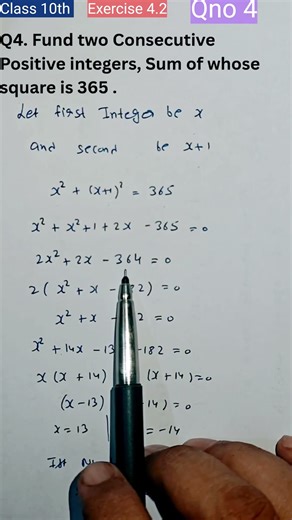 Class 10th Exercise 4.2 Qno 4
Q4. Fund two Consecutive
Positive integers, Sum of whose
square is 365 .
Let first Integer be x
and second be x+1
x² + (x+1)² = 365
x² + x² + 1 + 2x - 365 = 0
2x² + 2x - 364 = 0
2 ( x² + x - 2 ) = 0
x² + x - 2 = 0
x² + 14x - 13 - 182 = 0
x (x + 14) (x + 14) = 0
(x - 13) 14) = 0
x = 13 = -14
Ist